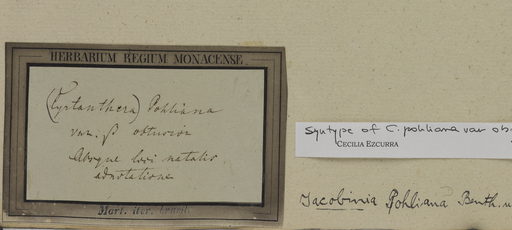 HERBARIUM REGIUM MONACENSE.
(Cyrtanthera) Pohliana
var. β obtusior
Absque loci natalis
adnotatione
Mart. iter. brasil.
Syntype of C. pohliana var
CECILIA EZCURRA
Jacobinia Pohliana Benth.